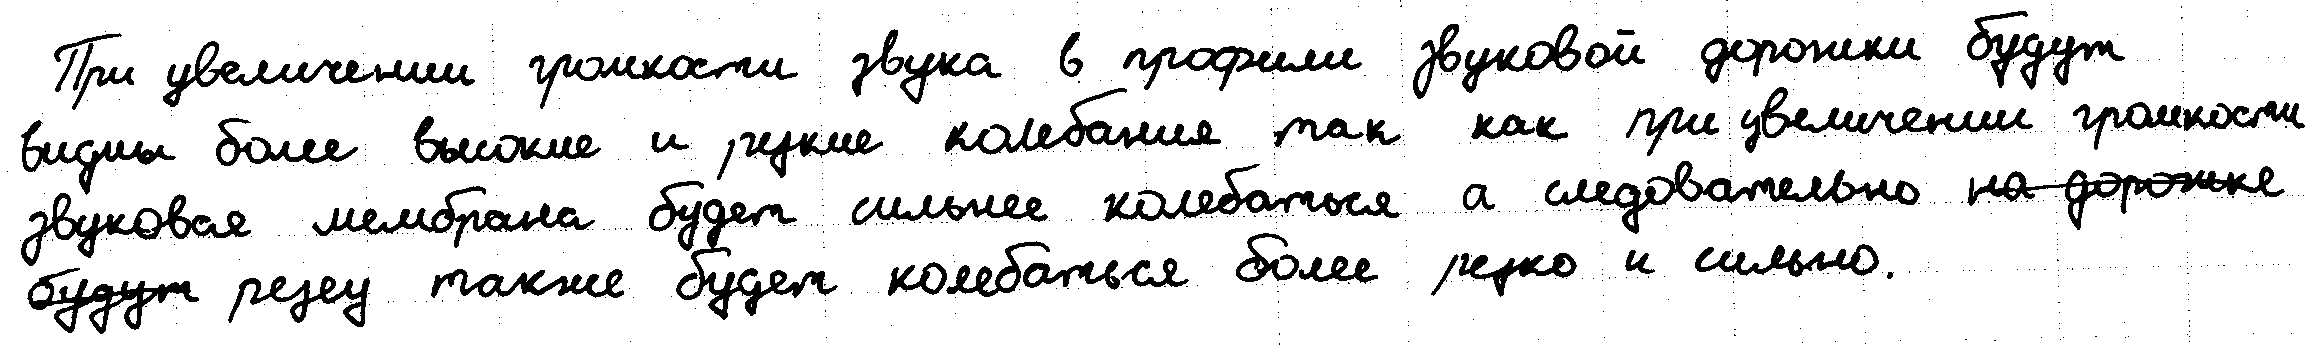 При увеличении громкости звука в профили звуковой дорожки будут
видны более высокие и резкие колебания так как при увеличении громкости
звуковая мембрана будет сильнее колебаться а следовательно на дорожке
будут резец также будет колебаться более резко и сильно.